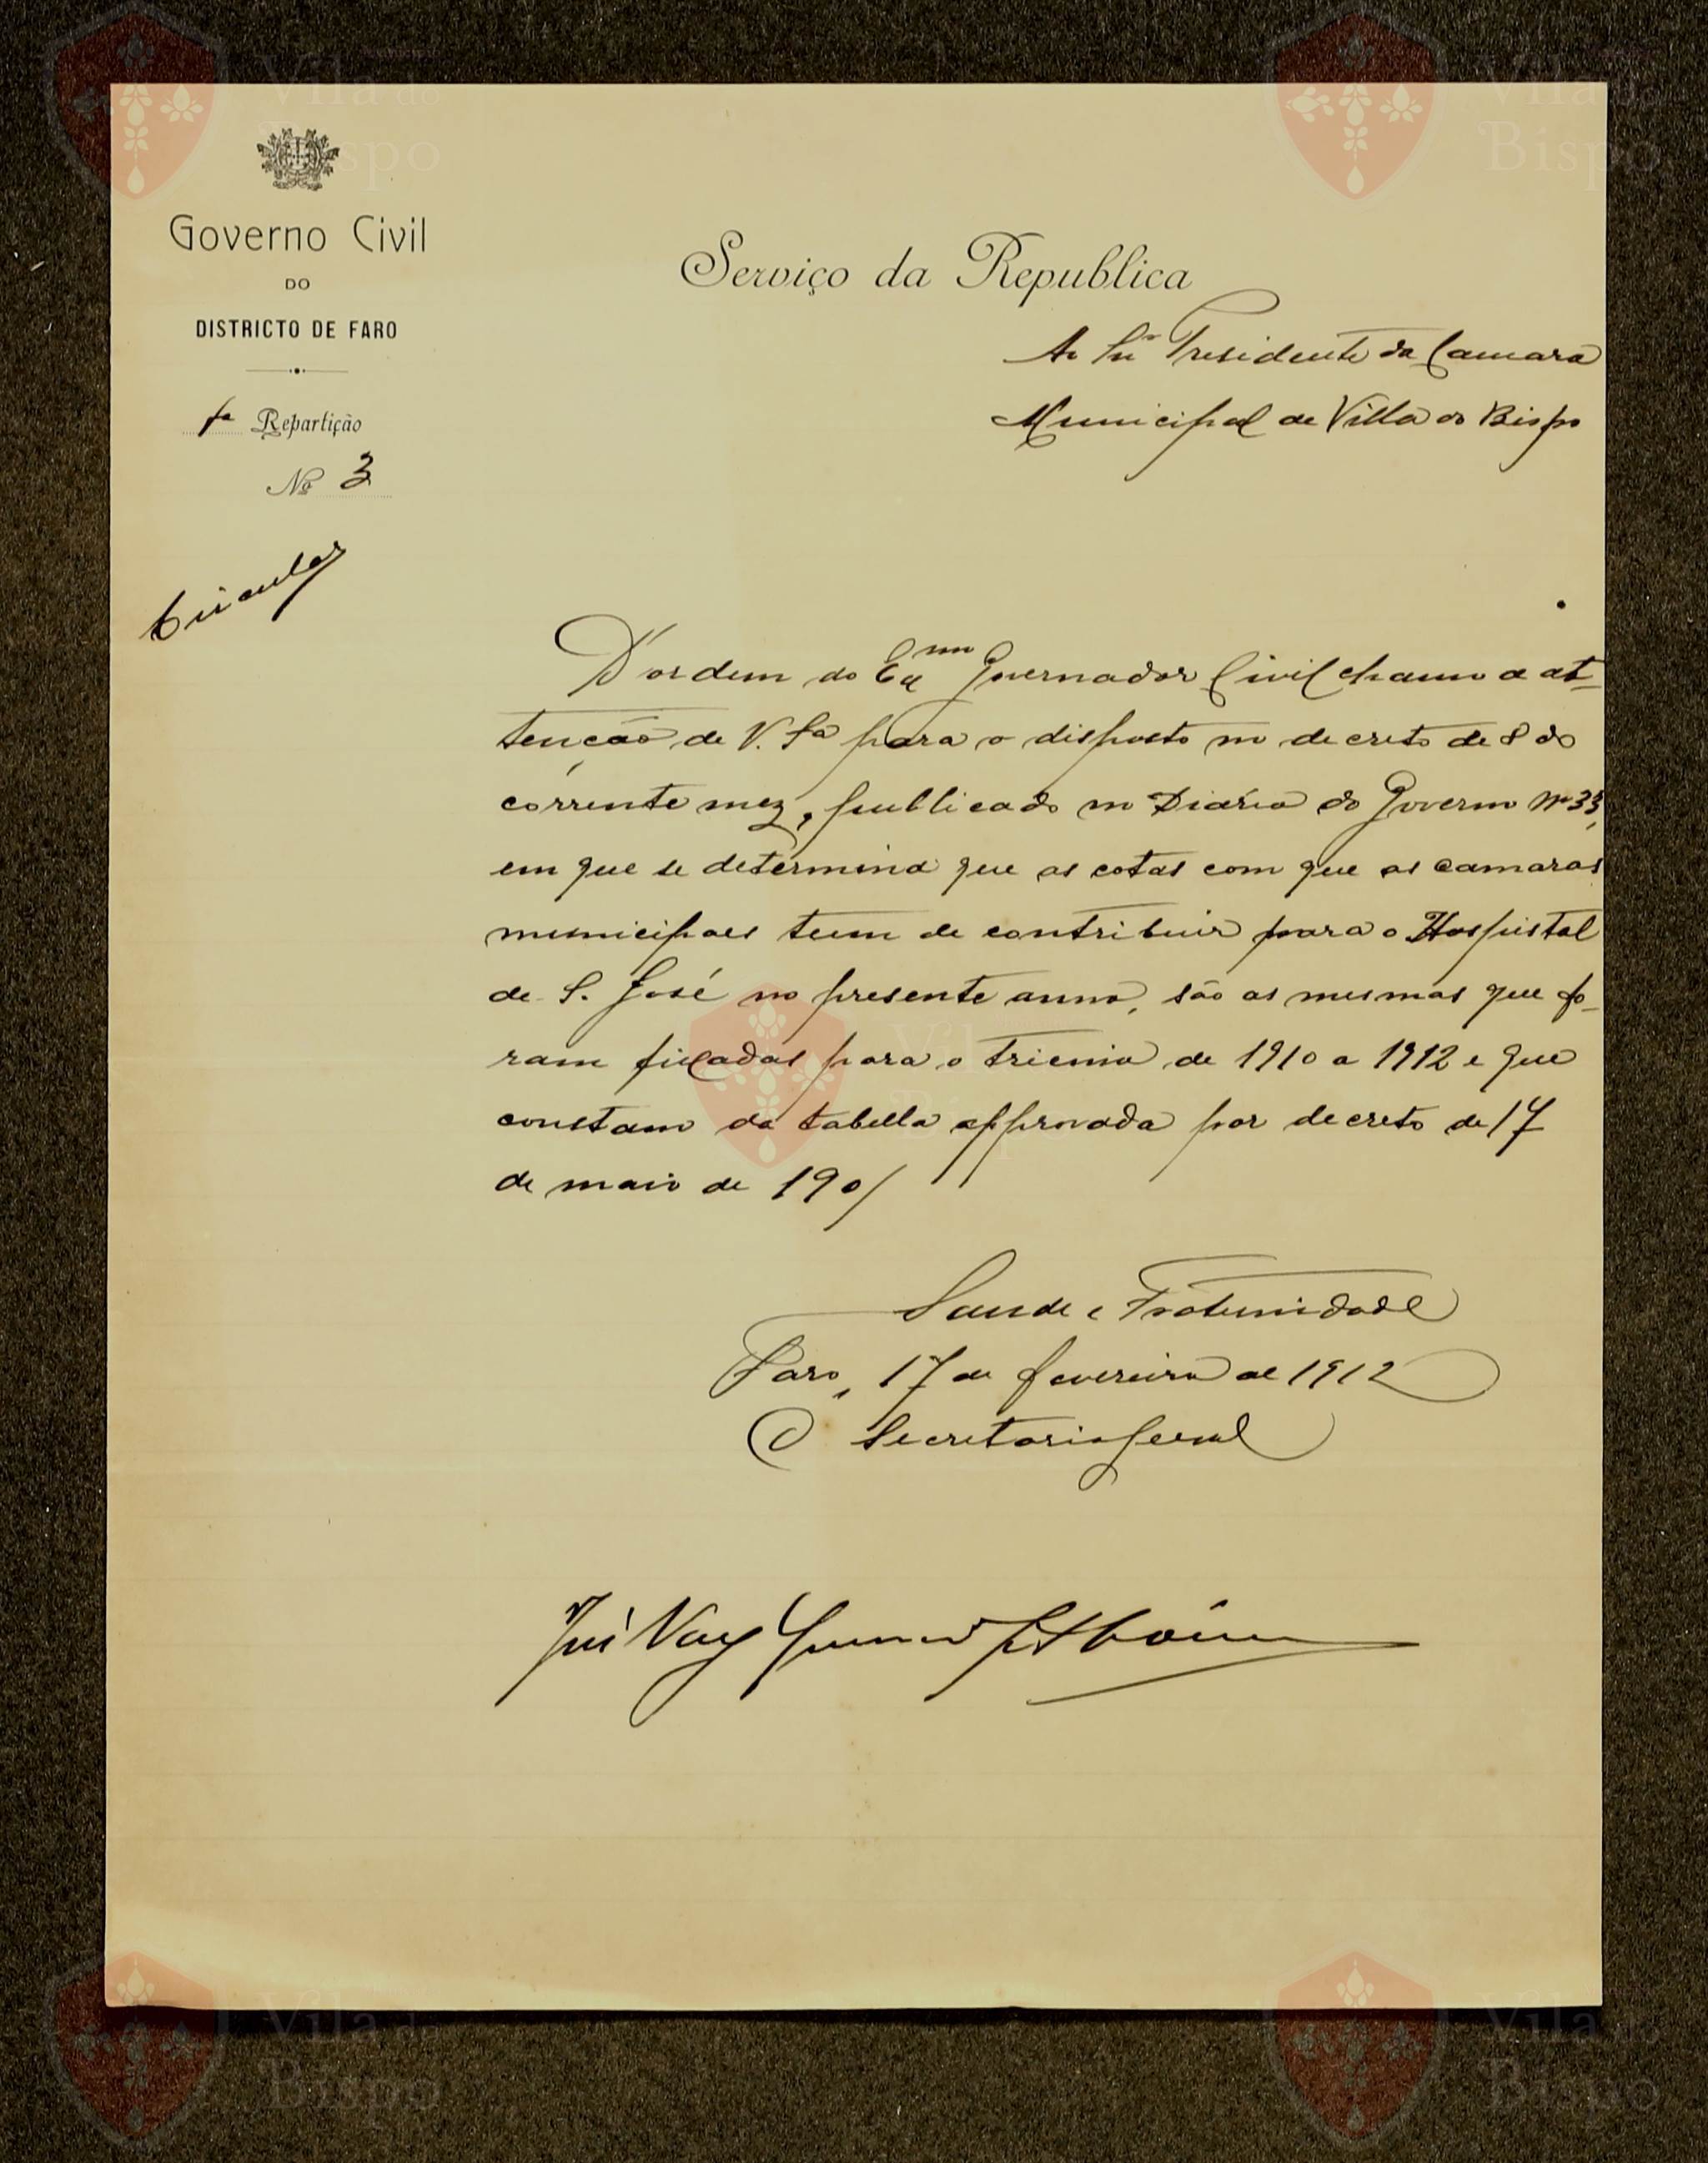 Governo Civil
DO
DISTRICTO DE FARO
1ª Repartição
Nº 3
Circular
Serviço da Republica
Ao Snr Presidente da Camara
Municipal de Villa do Bispo
D'ordem do Exmo Governador Civil chamo a at-
tenção de V. Sª para o disposto no decreto de 8 do
corrente mez, publicado no Diario do Governo Nº 33,
em que se determina que as cotas com que as camaras
municipaes teem de contribuir para o Hospital
de S. José no presente anno, são as mesmas que fo-
ram fixadas para o trienio de 1910 a 1912 e que
constam da tabella approvada por decreto de 17
de maio de 1901
Saude e Fraternidade
Faro, 17 de fevereiro de 1912
O Secretario Geral
José Vaz
Vila do
Bispo
Vila do
Bispo
Vila do
Bispo
Vila do
Bispo
Vila do
Bispo